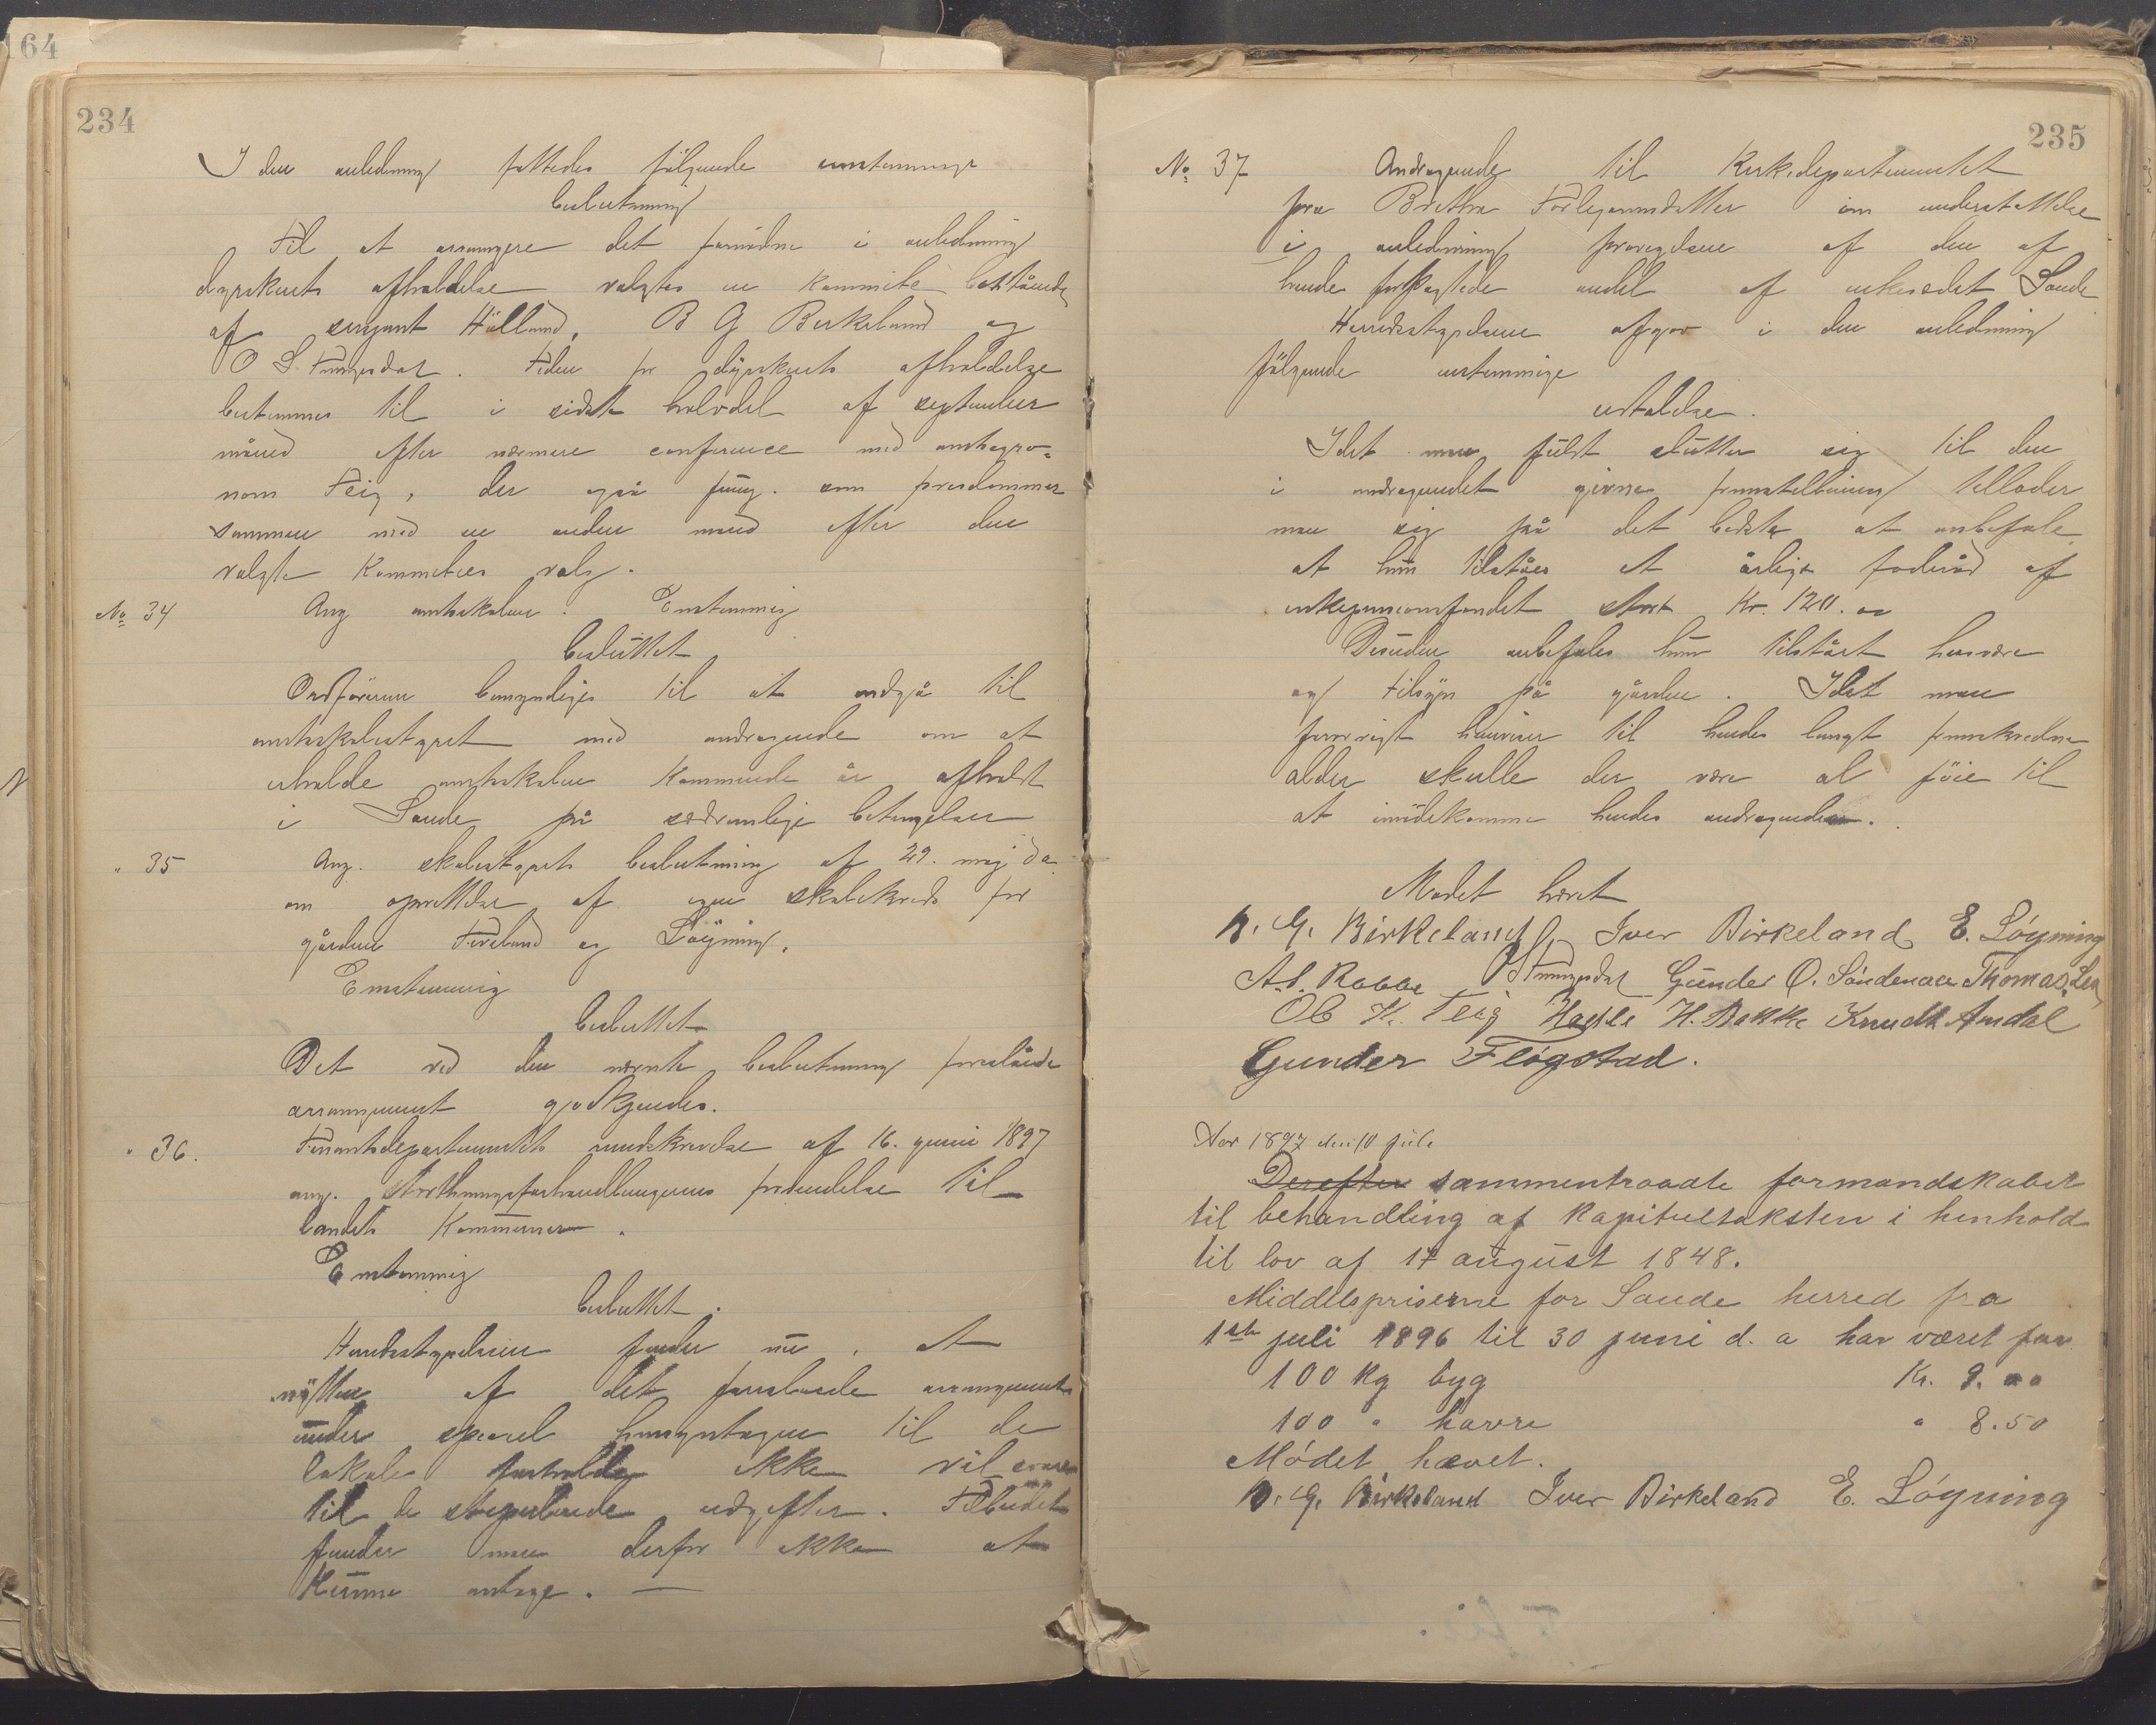 164
234
I den anledning fattedes fölgende enstemmige
beslutning
Til at arrangere det fornödne i anledning
dyrskuets afholdelse valgtes en kommite bestående
af sergeant Hölland, B G Birkeland og
O S. Tungesdal. Tiden for dyrskuets afholdelse
bestemmes til i sidste halvdel af september
måned efter nærmere conference med amtsagro-
nom Teig, der også fung. som prisdommer
sammen med en anden mand efter den
valgte kommitees valg.
No 34 Ang amtsskolen. Enstemmig
besluttet
Ordföreren bemyndiges til at andgå til
amtsskolestyret med andragende om at
erholde amtsskolen kommende år afholdt
i Sande på sædvanlige betingelser
" 35 Ang. skolestyrets beslutning af 29. maj d a
om oprettelse af egen skolekreds for
gårdene Fiveland og Löyning.
Enstemmig
besluttet
Det ved den nævnte beslutning foreslåede
arrangement godkjendes.
" 36. Finantsdepartementets rundskrivelse af 16. juni 1897
ang. storthingsforhandlingernes forsendelse til
landets kommuner.
Enstemmig
besluttet.
Herredsstyrelsen finder nu, at
nytten af det foreslaaede arrangement
under speciel hensyntagen til de
lokale forholde ikke vil svare
til de stipulerede udgifter. Tilbudet
finder man derfor ikke at
kunne antage. —
235
No 37 Andragende til Kirkedepartementet
fra Brithe Torlegeunsdatter om understøttelse
i anledning af den af
hende andel af enkesædet Sande
Herredsstyrelsen afgav i den anledning
fölgende enstemmige
udtalelse.
Idet man fuldt slutter sig til den
i andragendet givne fremstilling tillader
man sig på det bedste at anbefale
at hun tilståes et årligt föderåd af
enkepensionsfondet stort Kr. 120.00
Desuden anbefales hun tilstået husvære
og tilsyn på gården. Idet man
forövrigt henviser til hendes langt fremskredne
alder skulle der være al föie til
at imödekomme hendes andragende.
Mødet hævet
B. G. Birkeland Iver Birkeland E. Löyning
A. S. Rabbe O S Tungesdal Gunder O. Söndenaa Thomas Lea
Ole K. Teig H. Bakke Knudt Amdal
Gunder Flögstad.
Aar 1897 den 10 juli
Derefter sammentraadte formandskabet
til behandling af kapitelstaksten i henhold
til lov af 17 august 1848.
Middelspriserne for Saude herred fra
1ste juli 1896 til 30 juni d. a har været for
100 kg byg Kr. 9.00
100 " havre " 8.50
Mödet hævet.
B. G. Birkeland Iver Birkeland E. Löyning